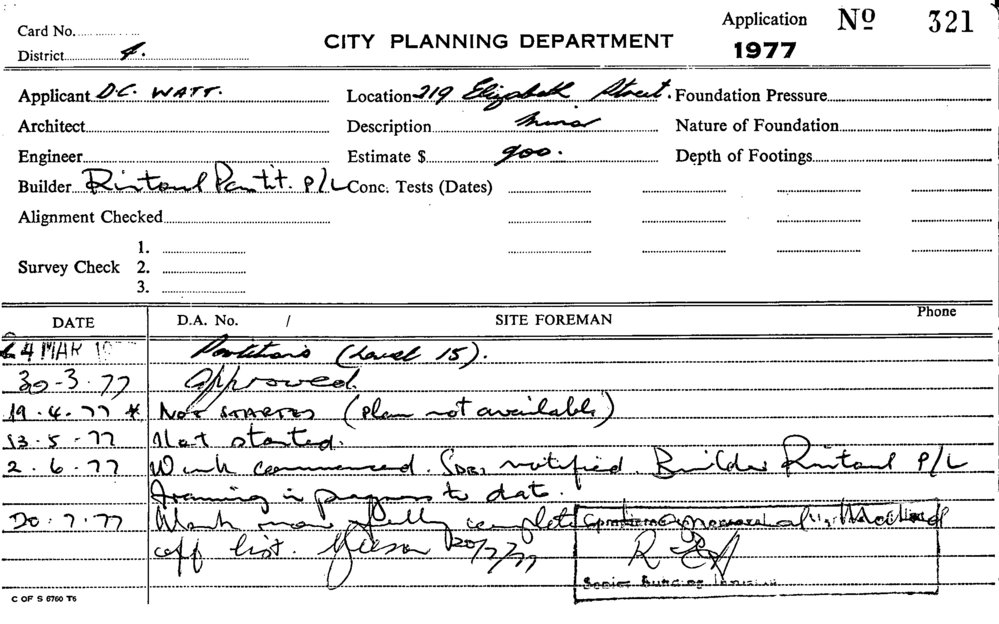 Card No.
District 4.
CITY PLANNING DEPARTMENT
Application Nº 321
1977
Applicant D.C. WATT. Location 219 Elizabeth Street. Foundation Pressure
Architect Description Minor Nature of Foundation
Engineer Estimate $ 900. Depth of Footings
Builder Rintoul Partit. P/L Conc. Tests (Dates)
Alignment Checked
1.
Survey Check 2.
3.
DATE D.A. No. / SITE FOREMAN Phone
4 MAR Partitions (Level 15).
30-3-77 Approved.
19.4.77 * NOT STARTED (plan not available)
13-5-77 Not started.
2.6.77 Work commenced. notified. Builder Rintoul P/L
framing in progress to date.
20.7.77 Work now fully complete
off list. 20/7/77
C OF S 6760 T6